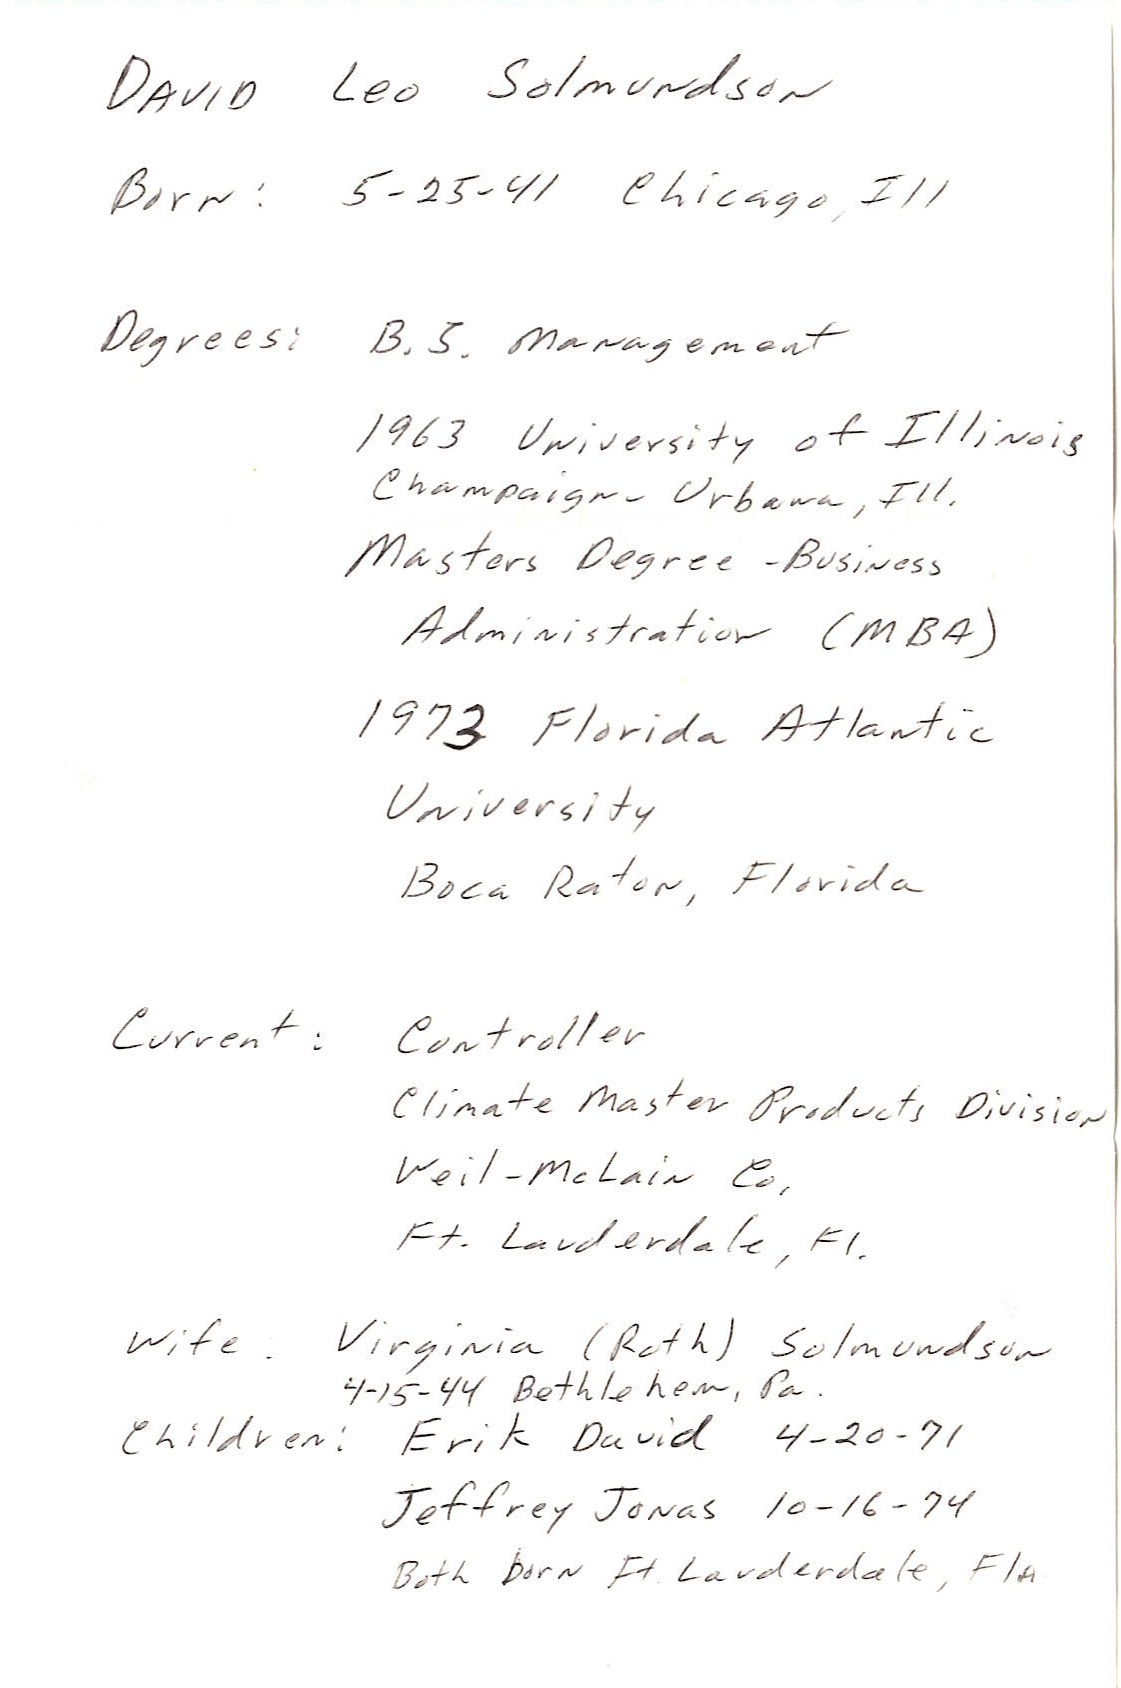 DAVID Leo Solmundson
Born: 5-25-41 Chicago, Ill
Degrees: B.S. Management
1963 University of Illinois
Champaign-Urbana, Ill.
Masters Degree - Business
Administration (MBA)
1973 Florida Atlantic
University
Boca Raton, Florida
Current: Controller
Climate Master Products Division
Weil-McLain Co.
Ft. Lauderdale, Fl.
Wife: Virginia (Roth) Solmundson
4-15-44 Bethlehem, Pa.
Children: Erik David 4-20-71
Jeffrey Jonas 10-16-74
Both born Ft. Lauderdale, Fla